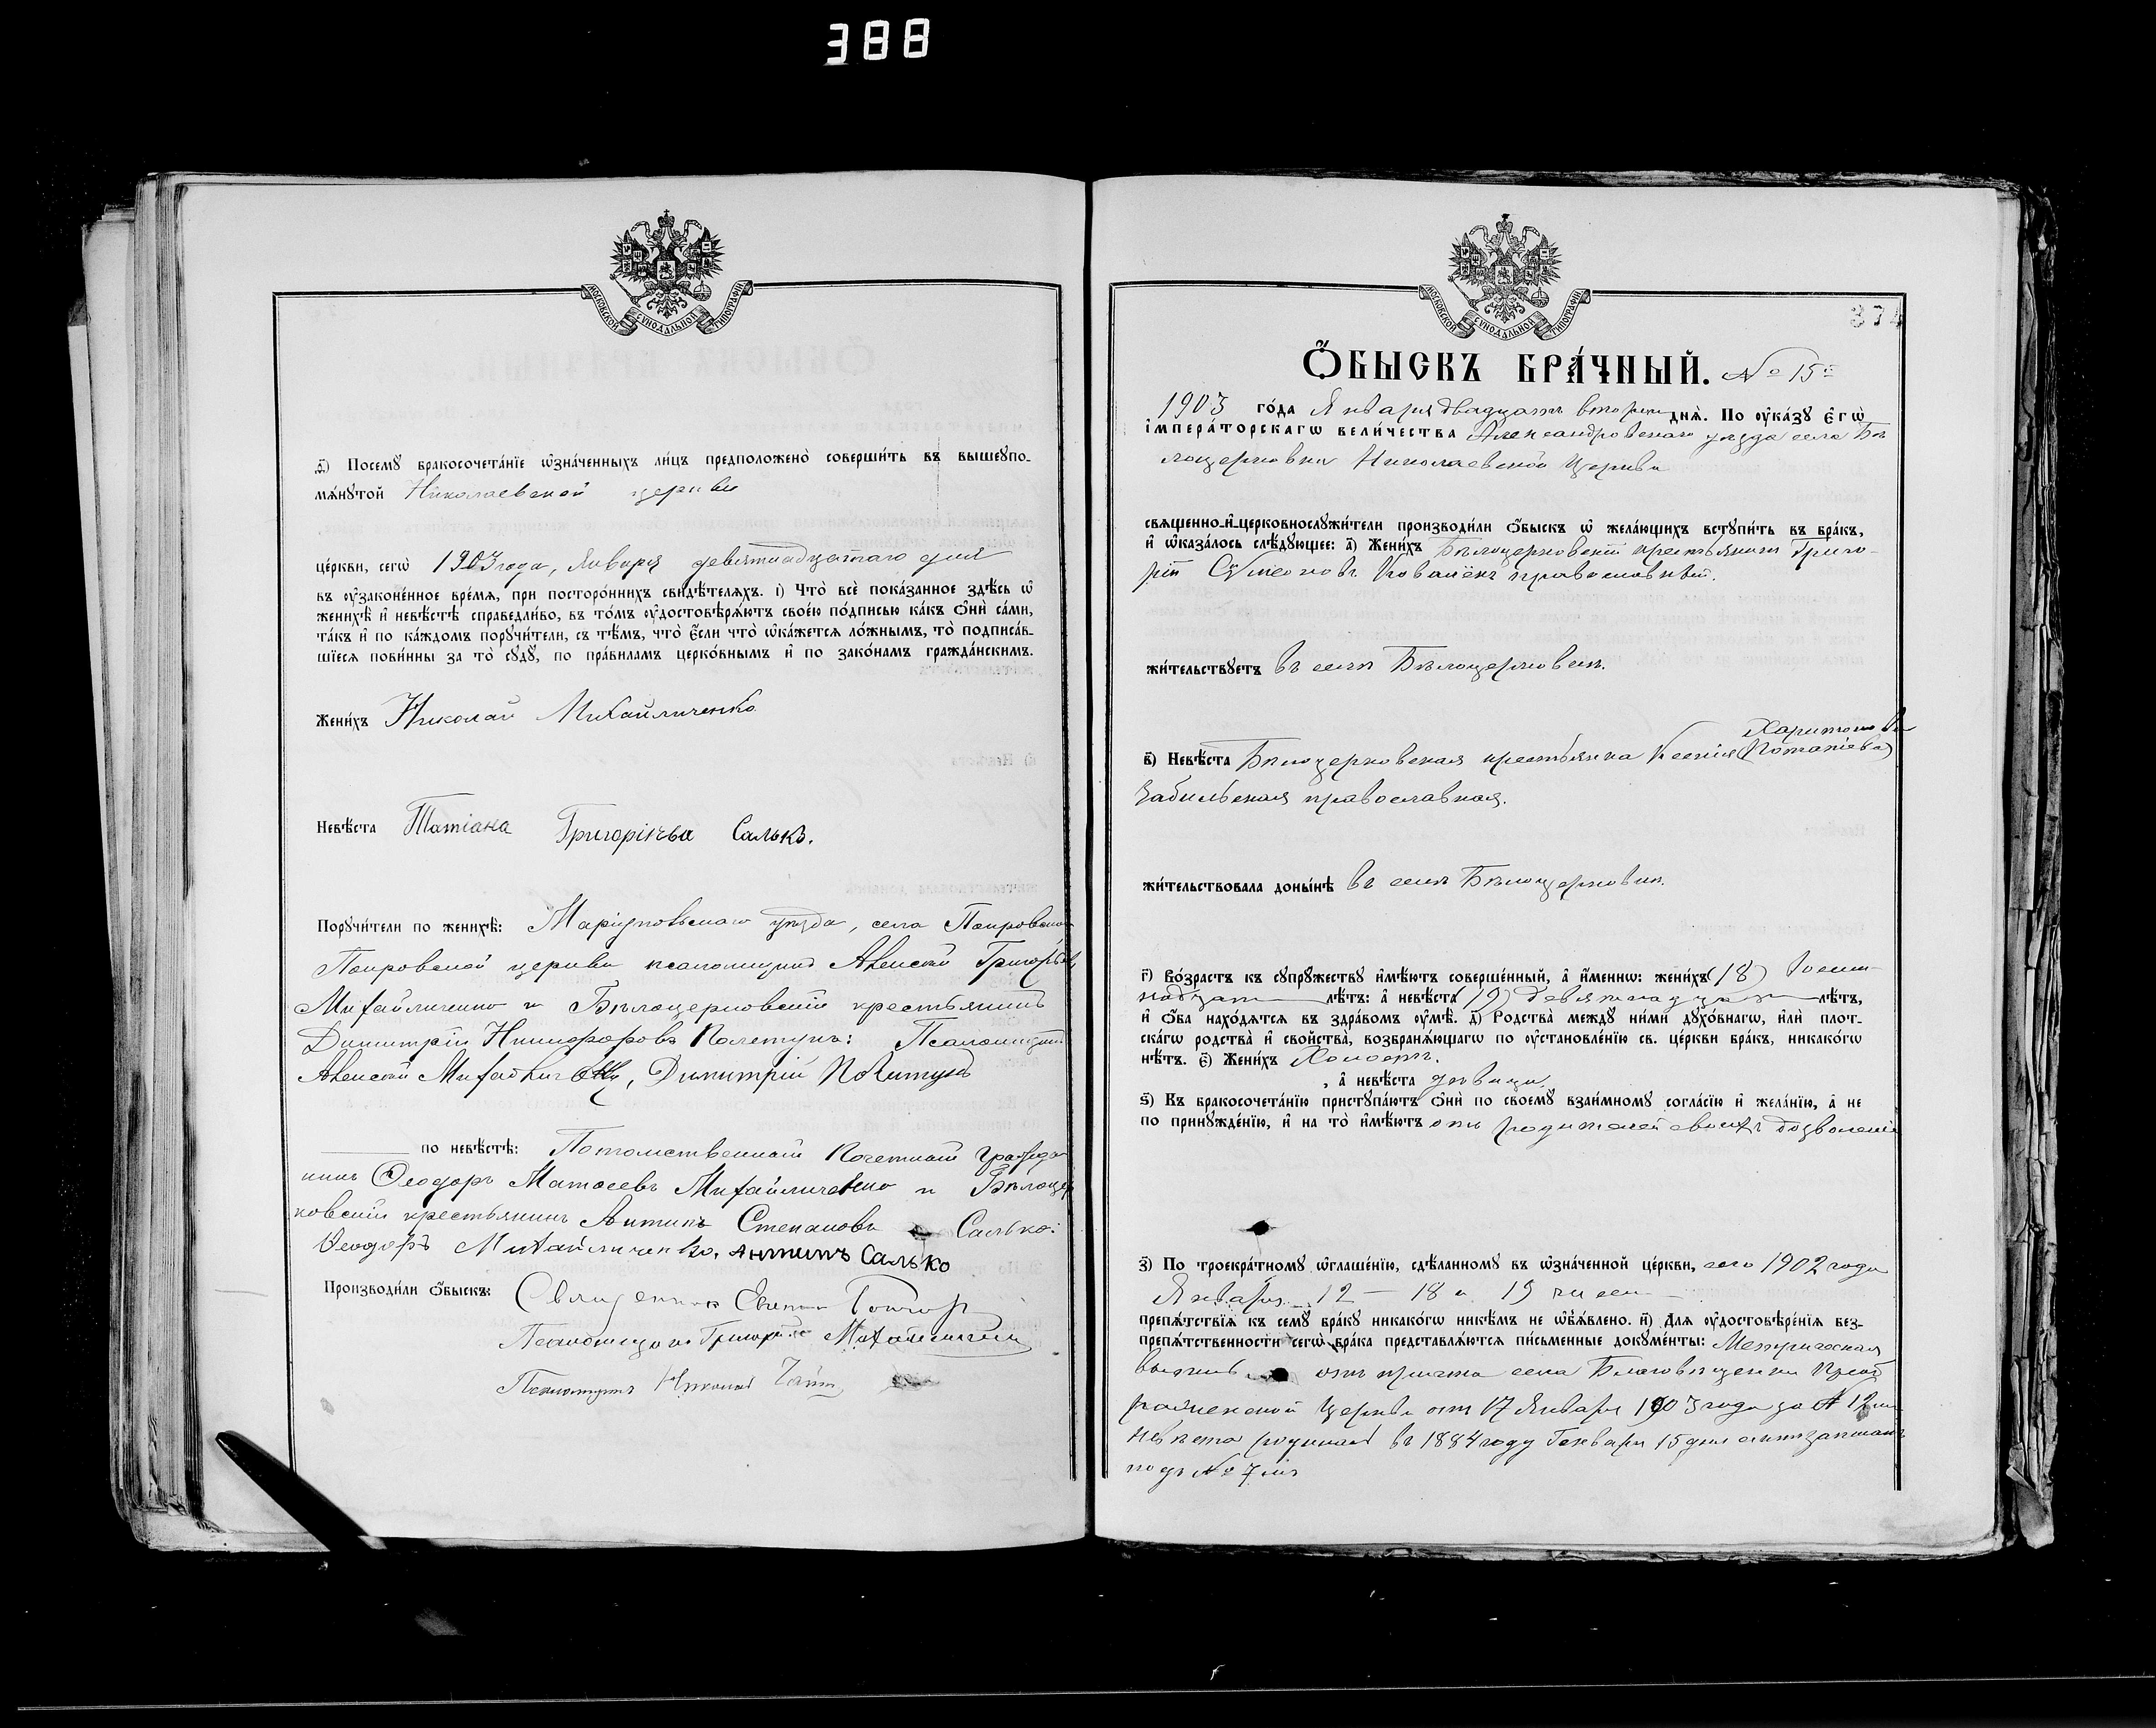 388
МОСКОВСКОЙ СѴНОДАЛЬНОЙ ТИПОГРАФІИ
Посемꙋ бракосочета́нїе ѡ҆зна́ченныхъ ли́цъ предположено̀ соверши́ть въ вышеꙋпо-
мѧ́нꙋтой Николаевской церкви
це́ркви, сегѡ̀ 1903 года, Января девятнадцатаго дня
въ ᲂу҆зако́ненное вре́мѧ, при посторо́ннихъ свидѣ́телѧхъ. і) Что̀ всѐ пока́занное здѣ́сь ѡ҆
женихѣ̀ и҆ невѣ́стѣ справедли́во, въ то́мъ ᲂу҆достовѣрѧ́ютъ свое́ю по́дписью ка́къ ѻ҆нѝ са́ми,
та́къ и҆ по ка́ждомъ порꙋчи́тели, съ тѣ́мъ, что̀ є҆́сли что̀ ѡ҆ка́жетсѧ ло́жнымъ, то̀ подписа́в-
шїесѧ пови́нны за то̀ сꙋдꙋ̀, по пра́виламъ церко́внымъ и҆ по зако́намъ гражда́нскимъ.
Жени́хъ Николай Михайличенко
Невѣ́ста Татіана Григоріева Салько.
Порꙋчи́тели по женихѣ̀: Маріупольскаго уѣзда, села Покровскаго
Покровской церкви псаломщикъ Алексій Григорьевъ
Михайличенко и Бѣлоцерковскій крестьянинъ
Димитрій Никифоровъ Полетукъ: Псаломщикъ
Алексій Михайличенко, Димитрій
по невѣ́стѣ: Потомственный Почетный Гражда-
нинъ Ѳеодоръ Матѳеевъ Михайличенко и Бѣлоцер
ковскій крестьянинъ Антипъ Степановъ Салько:
Ѳеодоръ Михайличенко, Антипъ Салько
Производи́ли ѻ҆́быскъ: Священникъ
Псаломщикъ Григорій Михайличенко
Псаломщикъ Николай
МОСКОВСКОЙ СѴНОДАЛЬНОЙ ТИПОГРАФІИ
374
Ѻ҆́БЫСКЪ БРА́ЧНЫЙ. № 15й
1903 го́да Января двадцать второго днѧ̀. По ᲂу҆ка́зꙋ є҆гѡ̀
і҆мпера́торскагѡ вели́чества Александровскаго уѣзда села Бѣ
лоцерковки Николаевской Церкви
свѧще́нно-и҆-церковнослꙋжи́тели производи́ли ѻ҆́быскъ ѡ҆ жела́ющихъ вступи́ть въ бра́къ,
и҆ ѡ҆каза́лось слѣ́дꙋющее: а҃) Жени́хъ Бѣлоцерковскій крестьянинъ Григо-
рій Сѵмеоновъ Коваленъ православный.
жи́тельствꙋетъ въ селѣ Бѣлоцерковкѣ.
Харитонова
в҃) Невѣ́ста Бѣлоцерковская крестьянка Ксенія (Потапіева)
Забильская православная.
жи́тельствовала доны́нѣ въ селѣ Бѣлоцерковкѣ.
г҃) Во́зрастъ къ сꙋпрꙋ́жествꙋ и҆мѣ́ютъ соверше́нный, а҆ и҆́меннѡ: жени́хъ (18) Восем-
надцать лѣ́тъ: а҆ невѣ́ста (19) девятнадцать лѣ́тъ,
и҆ ѻ҆́ба нахо́дѧтсѧ въ здра́вомъ ᲂу҆мѣ̀. д҃) Родства̀ междꙋ̀ ни́ми дꙋхо́внагѡ, и҆лѝ плот-
ска́гѡ родства̀ и҆ сво́йства, возбранѧ́ющагѡ по ᲂу҆становле́нїю св. це́ркви бра́къ, никако́гѡ
нѣ́тъ. є҃) Жени́хъ Холостъ.
, а҆ невѣ́ста дѣвица.
ѕ҃) Къ бракосочета́нїю пристꙋпа́ютъ ѻ҆нѝ по своемꙋ̀ взаи́мномꙋ согла́сїю и҆ жела́нїю, а҆ не
по принꙋжде́нїю, и҆ на то̀ и҆мѣ́ютъ отъ родителей своихъ дозволеніе
з҃) По троекра́тномꙋ ѡ҆глаше́нїю, сдѣ́ланномꙋ въ ѡ҆зна́ченной це́ркви, сего 1902 года
Января 12 — 18 и 19 чисел
препѧ́тствїѧ къ семꙋ̀ бра́кꙋ никако́гѡ никѣ́мъ не ѡ҆б̾ѧ́влено. и҃) Длѧ ᲂу҆достовѣре́нїѧ без-
препѧ́тственности сегѡ̀ бра́ка представлѧ́ютсѧ пи́сьменные докꙋме́нты: Метрическая
отъ причта села Благовѣщенки Преоб
раженской Церкви отъ 17 Января 1903 года за № 12
невѣста родилась въ 1884 году Генваря 15 дня актъ записанъ
подъ № 7мъ